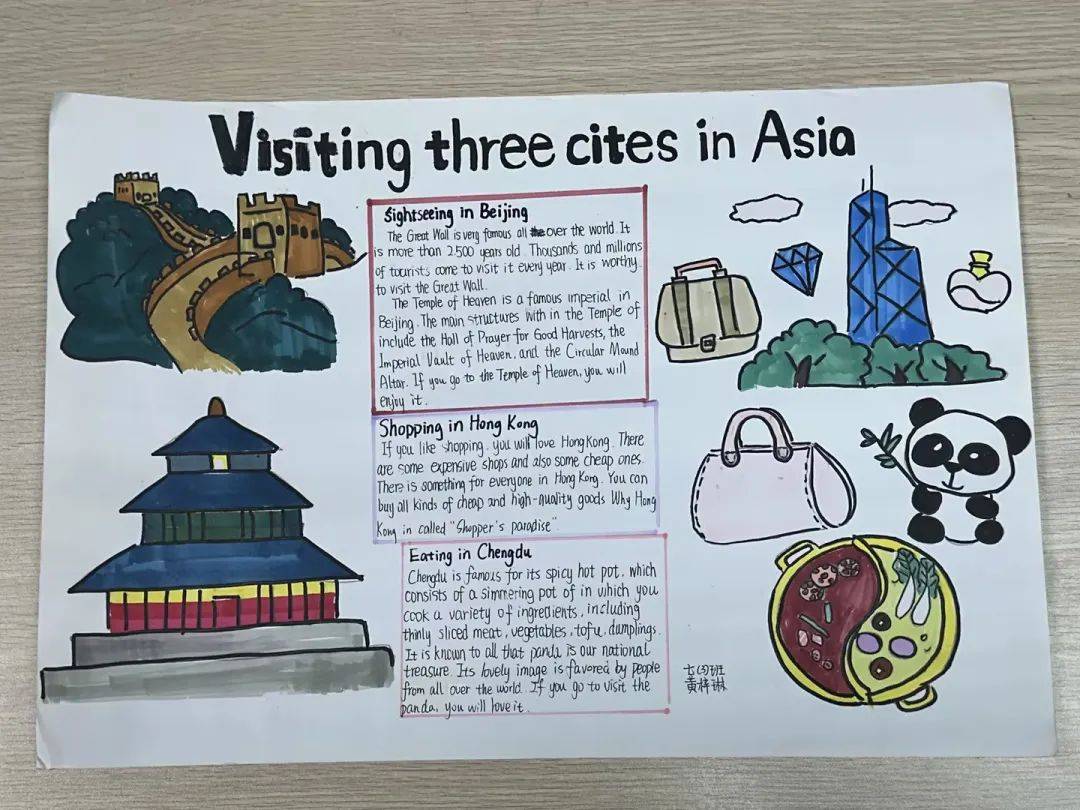 Visiting three cites in Asia
Sightseeing in Beijing
The Great Wall is very famous all the over the world. It
is more than 2500 years old. Thousands and millions
of tourists come to visit it every year. It is worthy
to visit the Great Wall.
The Temple of Heaven is a famous imperial in
Beijing. The main structures with in the Temple of
include the Hall of Prayer for Good Harvests, the
Imperial Vault of Heaven, and the Circular Mound
Altar. If you go to the Temple of Heaven, you will
enjoy it.
Shopping in Hong Kong
If you like shopping, you will love Hong Kong. There
are some expensive shops and also some cheap ones.
There is something for everyone in Hong Kong. You can
buy all kinds of cheap and high-nuality goods Why Hong
Kong in called "Shopper's paradise"
Eating in Chengdu
Chengdu is famous for its spicy hot pot, which
consists of a simmering pot of in which you
cook a variety of ingredients, including
thinly sliced meat, vegetables, tofu, dumplings.
It is known to all that panda is our national
treasure. Its lovely image is favored by people
from all over the world. If you go to visit the
panda, you will love it.
黄梓琳